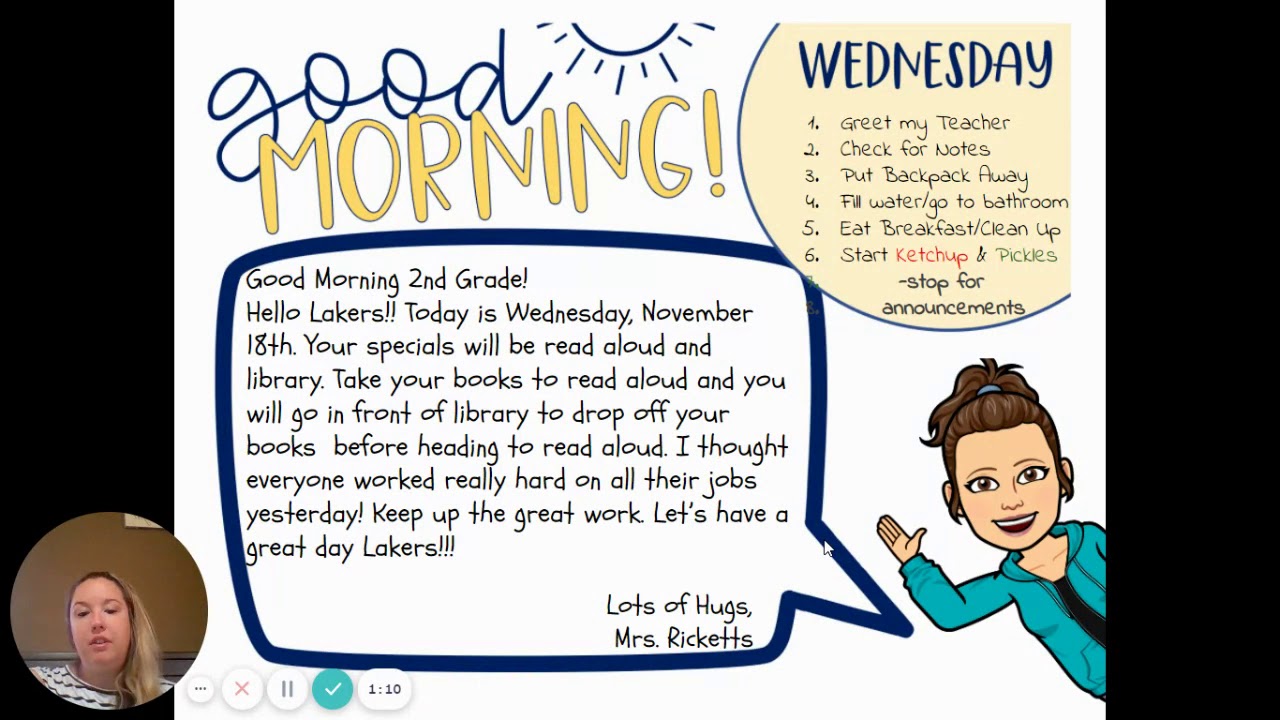 good
MORNING!
WEDNESDAY
1. Greet my Teacher
2. Check for Notes
3. Put Backpack Away
4. Fill water/go to bathroom
5. Eat Breakfast/Clean Up
6. Start Ketchup & Pickles
7. -stop for
8. announcements
Good Morning 2nd Grade!
Hello Lakers!! Today is Wednesday, November
18th. Your specials will be read aloud and
library. Take your books to read aloud and you
will go in front of library to drop off your
books before heading to read aloud. I thought
everyone worked really hard on all their jobs
yesterday! Keep up the great work. Let's have a
great day Lakers!!!
Lots of Hugs,
Mrs. Ricketts
1:10